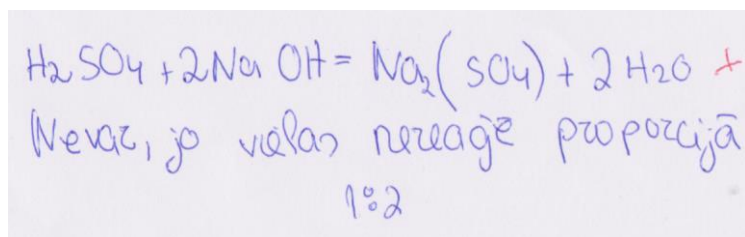 H₂SO₄ + 2NaOH = Na₂(SO₄) + 2H₂O +
Nevar, jo vielas nereaģē proporcijā
1:2